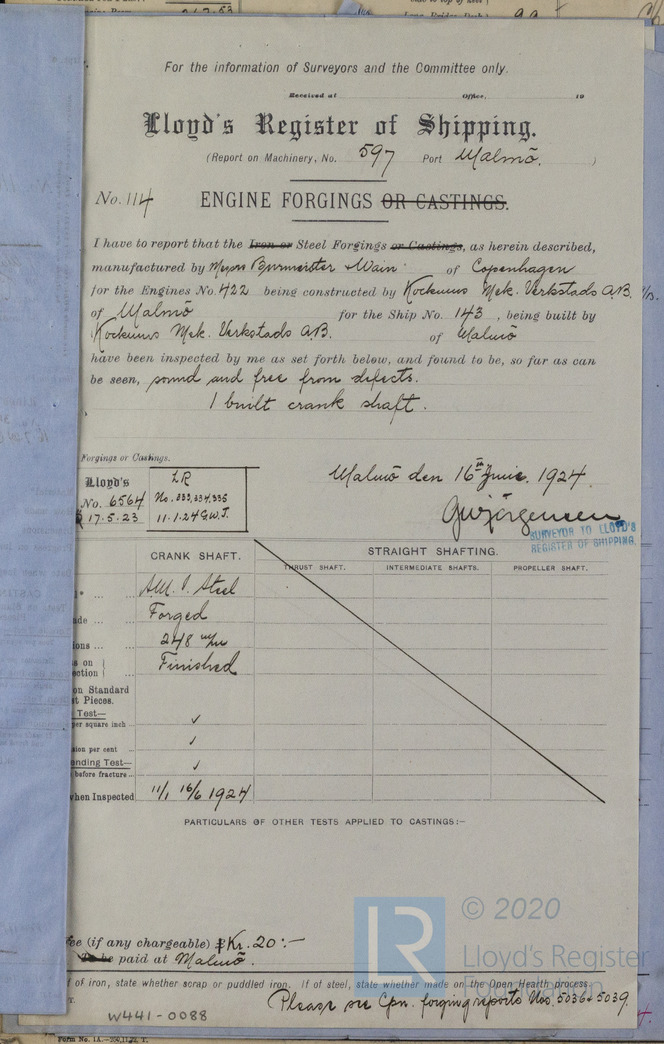 For the information of Surveyors and the Committee only.
Received at Office, 19
Lloyd's Register of Shipping.
(Report on Machinery, No. 597 Port Malmö. )
No. 114 ENGINE FORGINGS OR CASTINGS.
I have to report that the Iron or Steel Forgings or Castings, as herein described,
manufactured by Burmeister & Wain of Copenhagen
for the Engines No. 422 being constructed by Kockums Mek. Verkstads A.B.
of Malmö for the Ship No. 143, being built by
Kockums Mek. Verkstads A.B. of Malmö
have been inspected by me as set forth below, and found to be, so far as can
be seen, sound and free from defects.
1 built crank shaft.
Forgings or Castings.
Lloyd's
No. 6564
17.5.23
LR
No. 333,334,335
11.1.24 G.W.J.
Malmö den 16th June 1924.
GWJörgensen
SURVEYOR TO LLOYD'S
REGISTER OF SHIPPING.
CRANK SHAFT. STRAIGHT SHAFTING.
THRUST SHAFT. INTERMEDIATE SHAFTS. PROPELLER SHAFT.
Steel
Forged
248 m/m
Finished
on Standard
st Pieces.
Test—
per square inch ✓
sion per cent ✓
ending Test—
before fracture ✓
when Inspected 11/1 16/6 1924
PARTICULARS OF OTHER TESTS APPLIED TO CASTINGS:—
ee (if any chargeable) £Kr. 20:—
To be paid at Malmö.
f of iron, state whether scrap or puddled iron. If of steel, state whether made on the Open Hearth process
Please see Cpn. forging reports Nos. 5036 & 5039.
W441-0088
Form No. 1A.
LR
© 2020
Lloyd's Register
Foundation